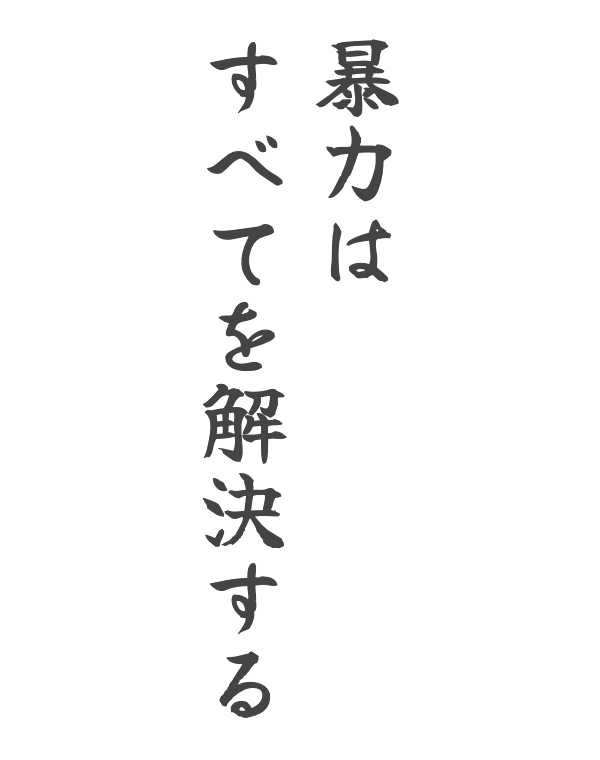 暴力は
すべてを解決する